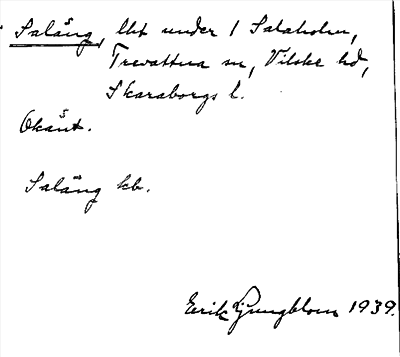 Saläng, lht under 1 Salaholm,
Trevattna sn, Vilske hd,
Skaraborgs l.
Okänt.
Saläng kb.
Erik Ljungblom 1939.